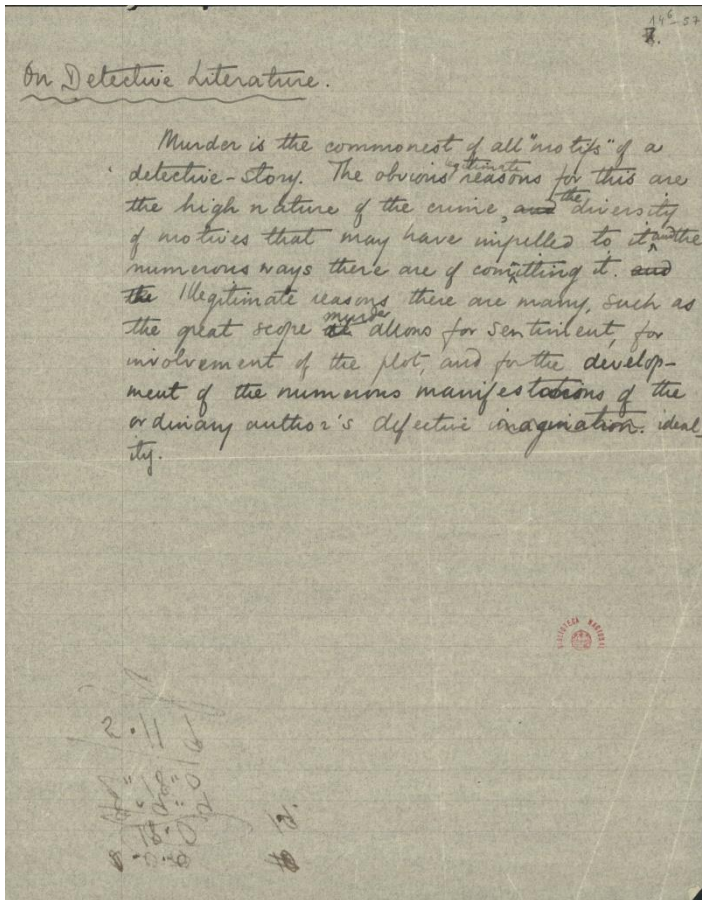 14⁶-57
On Detective Literature.
Murder is the commonest of all "motifs" of a
detective-story. The obvious legitimate reasons for this are
the high nature of the crime, and the diversity
of motives that may have impelled to it and the
numerous ways there are of committing it. and
the Illegitimate reasons there are many, such as
the great scope murder allows for sentiment, for
involvement of the plot, and for the develop-
ment of the numerous manifestations of the
ordinary author's defective imagination. ideal-
ity.
BIBLIOTECA NACIONAL